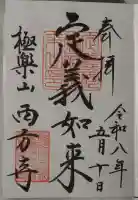 奉拝
令和八年
五月十日
定義如来
極樂山 西方寺